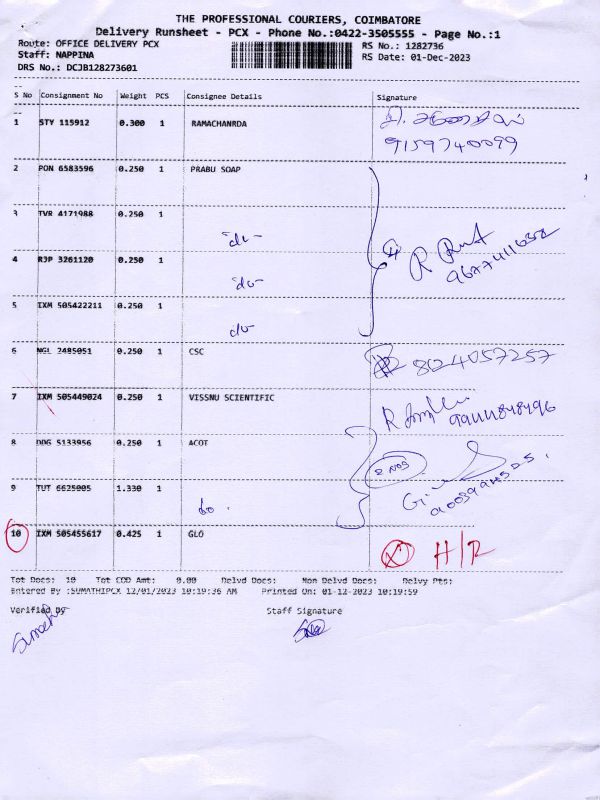 THE PROFESSIONAL COURIERS, COIMBATORE
Delivery Runsheet - PCX - Phone No.:0422-3505555 - Page No.:1
Route: OFFICE DELIVERY PCX RS No.: 1282736
Staff: NAPPINA RS Date: 01-Dec-2023
DRS No.: DCJB128273601
S No Consignment No Weight PCS Consignee Details Signature
1 STY 115912 0.300 1 RAMACHANRDA
9159740099
2 PON 6583596 0.250 1 PRABU SOAP
3 TVR 4171988 0.250 1
do-
4 RJP 3261120 0.250 1
do-
5 IXM 505422211 0.250 1
do-
6 NGL 2485051 0.250 1 CSC 8024057257
7 IXM 505449024 0.250 1 VISSNU SCIENTIFIC
8 DDG 5133956 0.250 1 ACOT
2 NOS
9 TUT 6625005 1.330 1
do.
10 IXM 505455617 0.425 1 GLO
H/R
Tot Docs: 10 Tot COD Amt: 0.00 Delvd Docs: Non Delvd Docs: Delvy Pts:
Entered By :SUMATHIPCX 12/01/2023 10:19:36 AM Printed On: 01-12-2023 10:19:59
Verified By Staff Signature